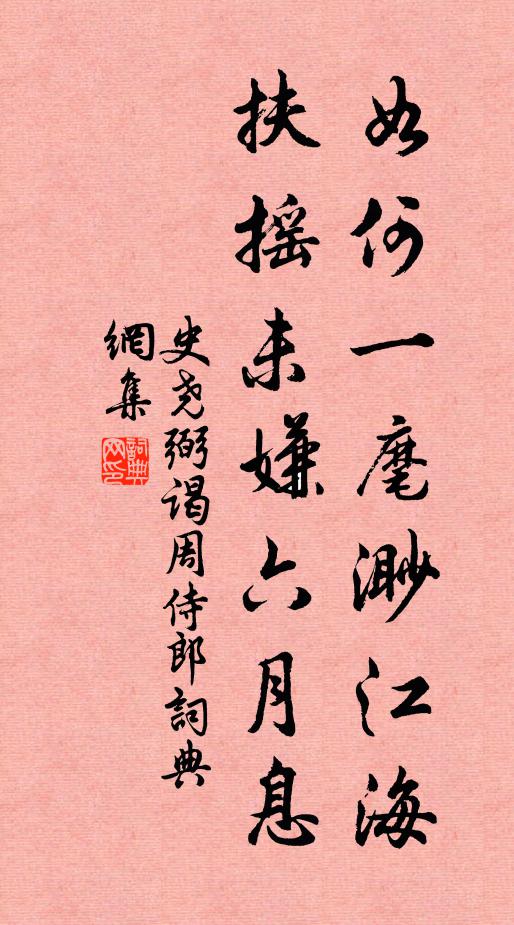 如何一麾渺江海
扶摇未嫌六月息
史尧弼谒周侍郎詞典
網集
詞典
网印